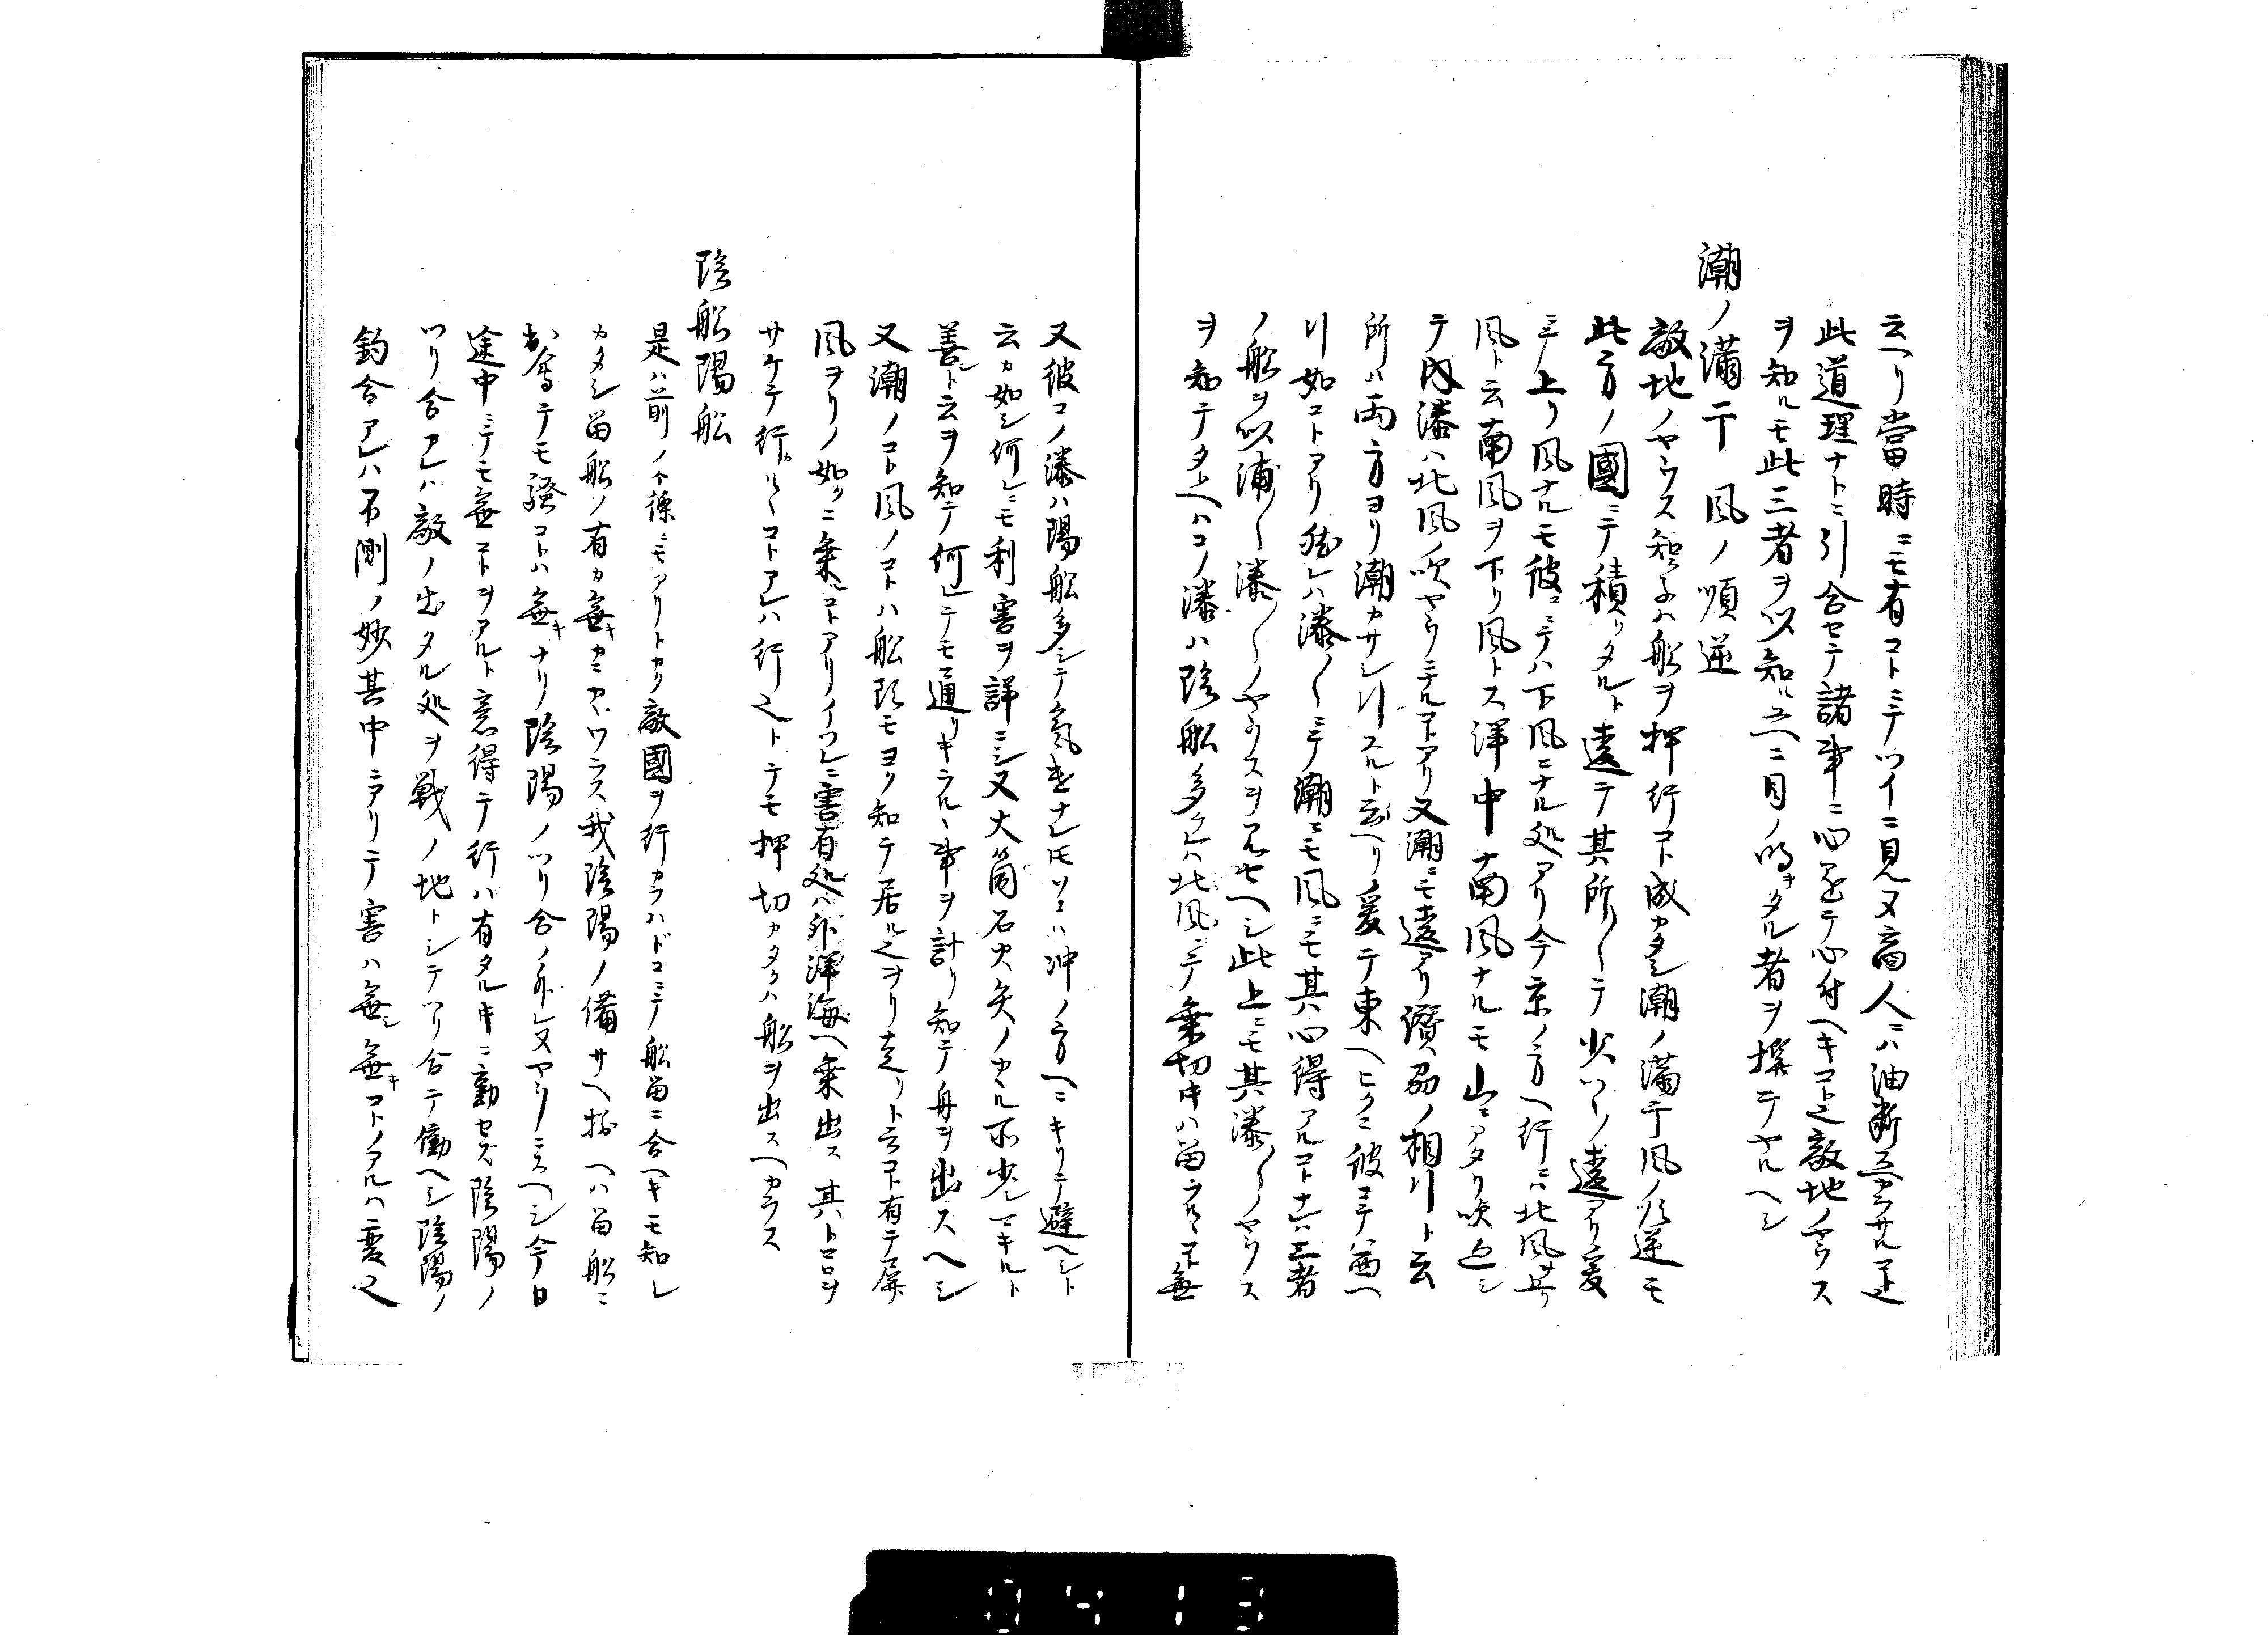 云ヘリ當時ニモ有コトミテツイニ見又商人ニハ油断スヘカラサルコト之
此道理ナトニ引合セテ諸事ニ心ヲ至テ心付ヘキコト之敵地ノヤウス
ヲ知ルモ此三者ヲ以知ル之ニ目ノ明キタル者ヲ撰テヤルヘシ
潮ノ滿干風ノ順逆
敵地ノヤウス知子ハ船ヲ押行コト成カタシ潮ノ滿干風ノ順逆モ
此方ノ國ニテ積リタルト違テ其所〳〵ニテ少ツヽノ違アリ爰
ニテ上リ風ナルモ彼コニテハ下風ニナル処アリ今京ノ方ヘ行ニハ北風
風ト云南風ヲ下リ風トス洋中ナ南風ナルモ山ニアタリ吹返シ
テ内湊ハ北風ノ吹ヤウニナルコトアリ又潮ニモ違アリ讃州ノ相引ト云
所ハ両方ヨリ潮カサシ引スルト云ヘリ爰テ東ヘヒクニ彼コニテハ西ヘ
引如コトアリ然レハ湊〳〵ニテ潮ニモ風ニモ其心得アルコトナレハ三者
ノ船ヲ以浦〳〵湊〳〵ノヤウスヲ見セヘシ此上ニモ其湊〳〵ノヤウス
ヲ知テタトヘハコノ湊ハ陰船多クレハ北風ニテ乗切キハ留ラルヽコト無
又彼コノ湊ハ陽船多シテ氣遣ナレモソレハ沖ノ方ヘニキリテ避ヘシト
云カ如シ何レニモ利害ヲ詳ニシ又大筒石火矢ノカヽル所少シマキルト
善シト云ヲ知テ何レニテモ通リキラルヽ事ヲ計リ知テ舟ヲ出スヘシ
又潮ノコト風ノコトハ船頭モヨク知テ居ル之ヲリ走リト云コト有テ屏
風ヲリノ如クニ乗ルコトアリノイツレニ害有処ハ外洋海ヘ乗出ス其トコロヲ
サケテ行カルヽコトアレハ行之トテモ押切カタクハ船ヲ出スヘカラス
陰船陽船
是ハ前ノ个條ニモアリトカク敵國ヲ行カラハドコニテ船留ニ合ヘキモ知レ
カタシ留船ノ有カ無キカニカヽワラス我陰陽ノ備サヘ拵ヘハ留船ニ
出會テモ騒コトハ無キナリ陰陽ノツリ合ノ外レヌヤウニスヘシ今日
途中ニテモ無コトヲアルト意得テ行ハ有タルキニ動セズ陰陽ノ
ツリ合アレハ敵ノ出タル処ヲ戦ノ地トシテツリ合テ働ヘシ陰陽ノ
釣合アレハ不測ノ妙其中ニアリテ害ハ無シ無キコトノアルハ変之